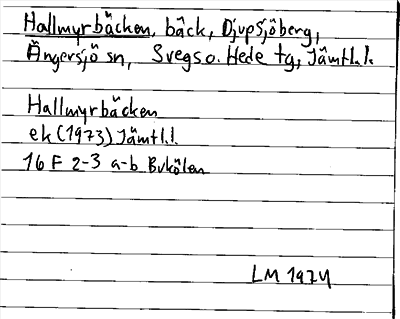 Hallmyrbäcken, bäck, Djupsjöberg,
Ängersjö sn, Svegs o. Hede tg, Jämtl. l.
Hallmyrbäcken
ek (1973) Jämtl. l.
16 F 2-3 a-b Bukölen
LM 1974